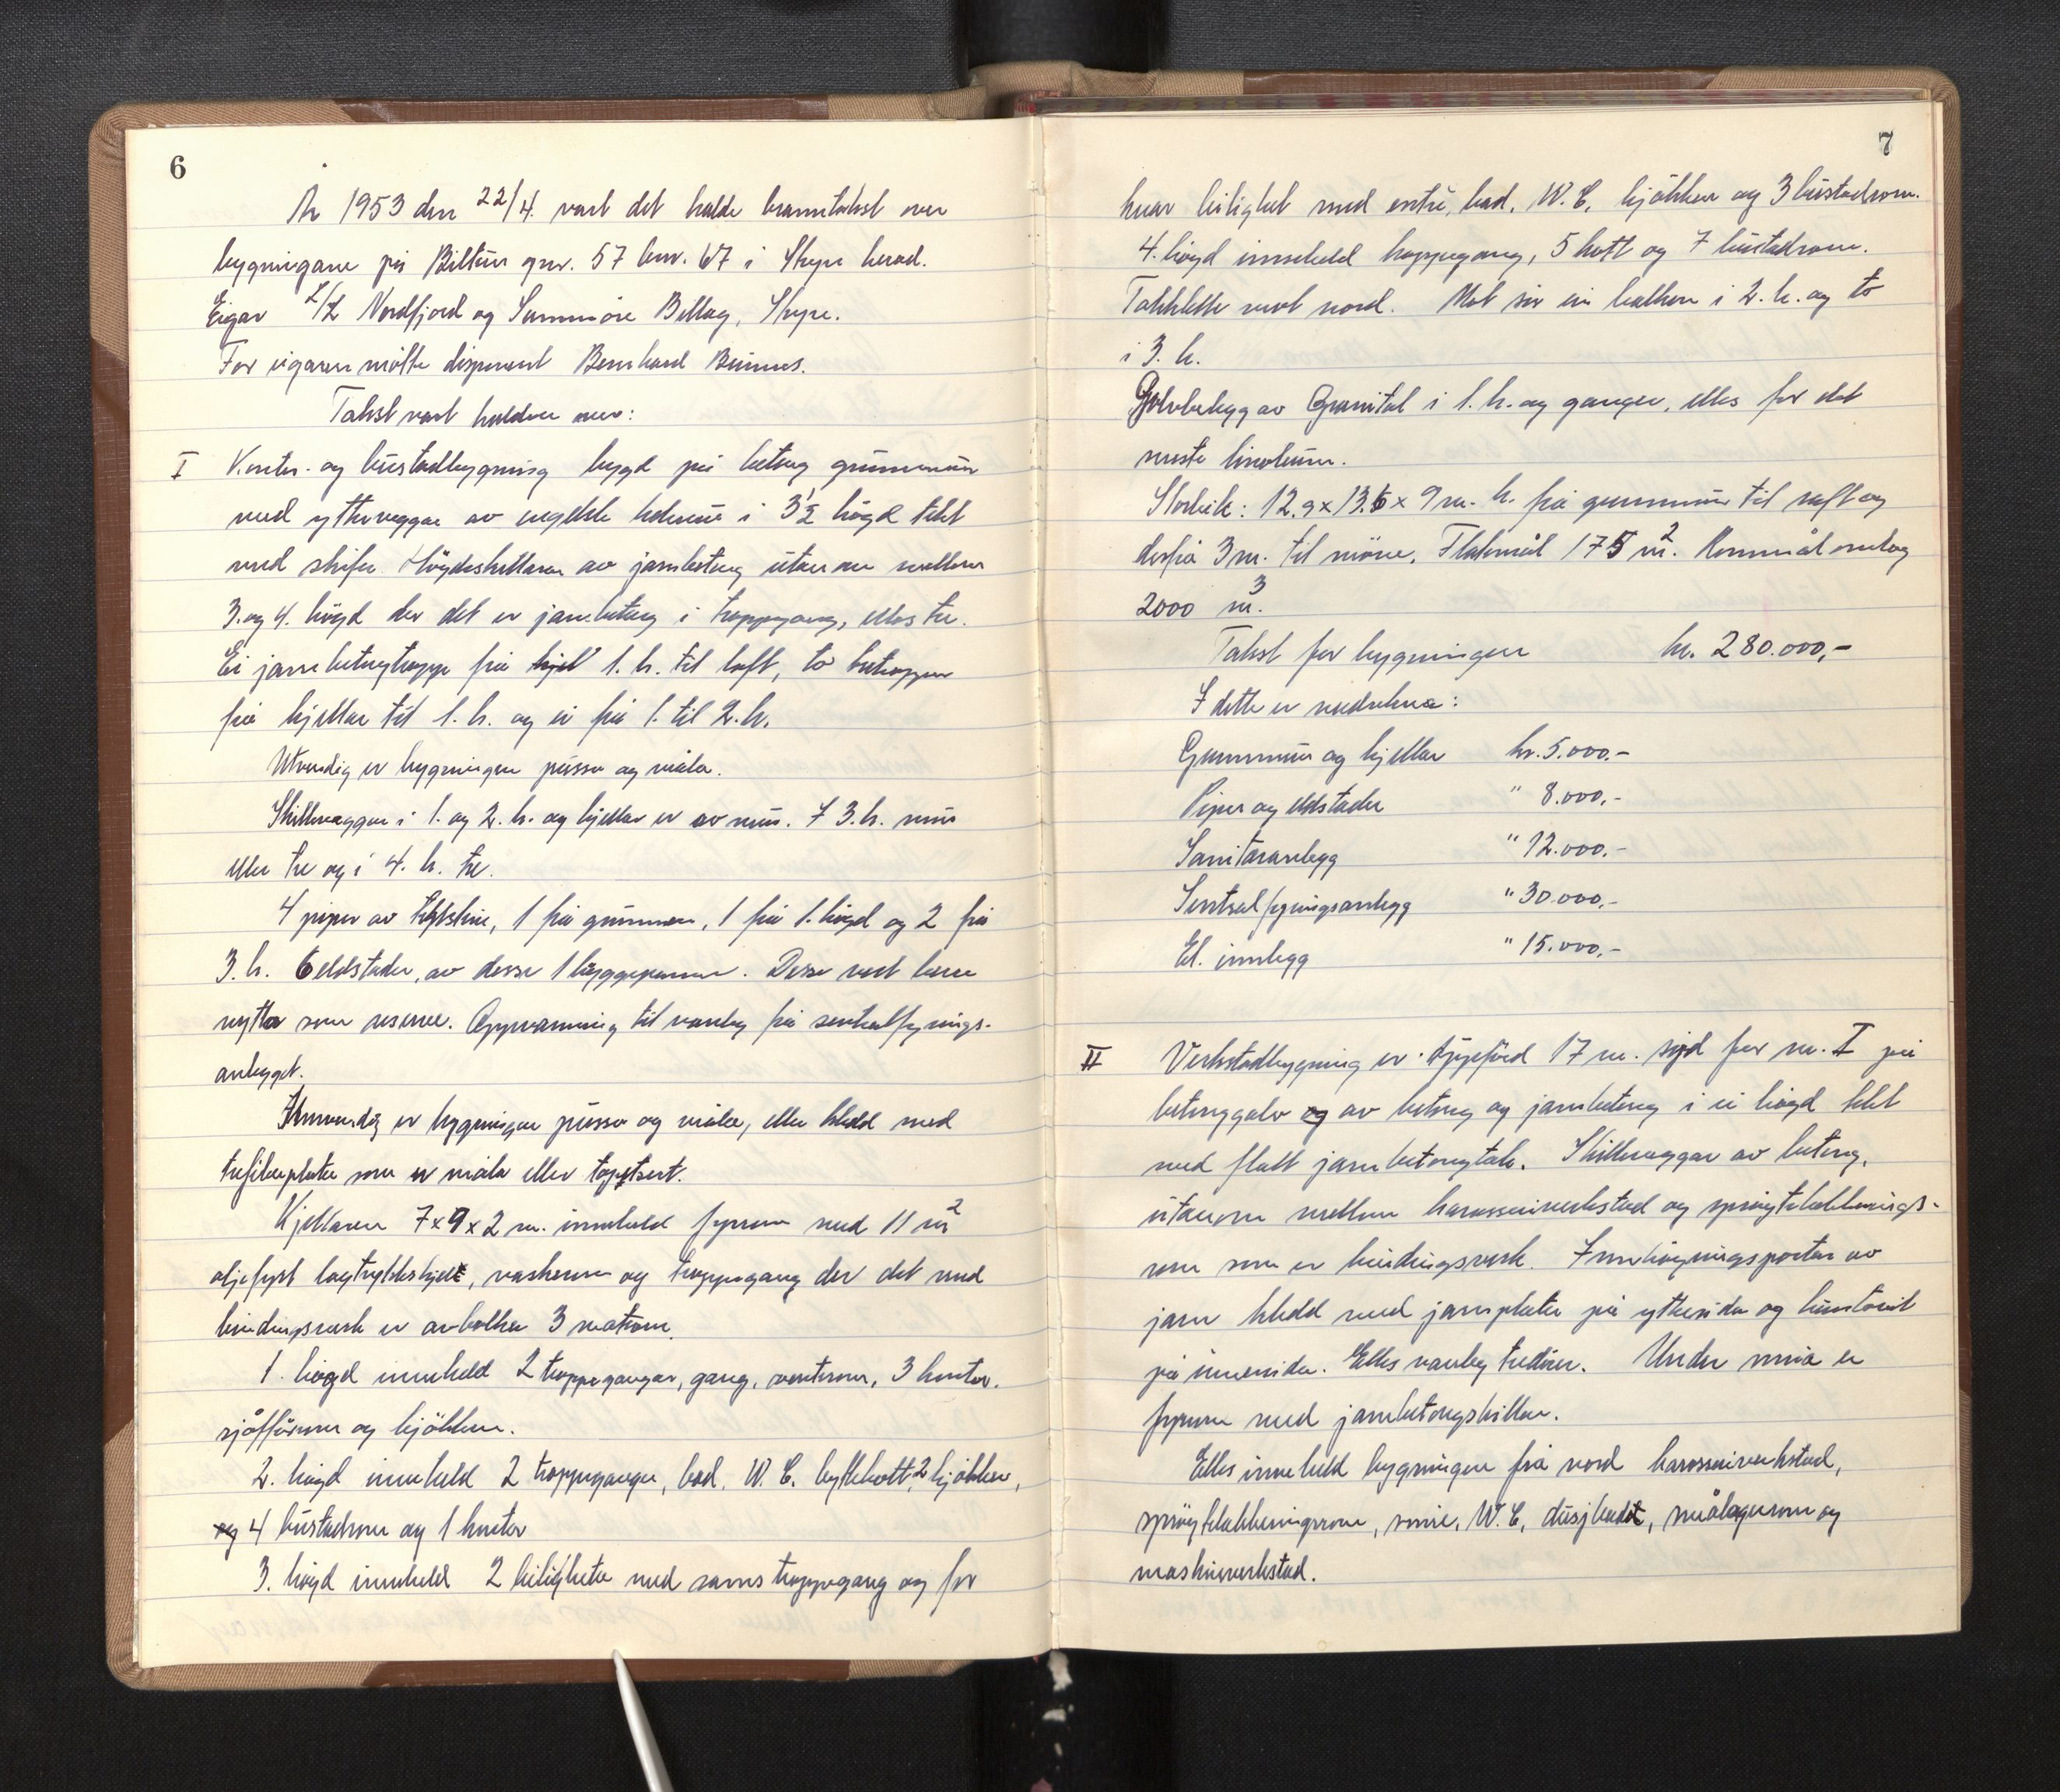 6
År 1953 den 22/4. vart det halde branntakst over
bygningane på Biltun gnr. 57 bnr. 67 i Stryn herad.
Eigar L/L Nordfjord og Sunnmöre Billag, Stryn.
For eigaren mötte disponent Bernhard
Takst vart halden over:
I Kontor- og bustadbygning bygd på betong grunnmur
med ytterveggar av teglstein i 3½ högd tekt
med skifer. Högdeskillarar av jarnbetong utanom mellom
3. og 4. högd der det er jarnbetong i troppegang, elles tre.
Ei jarnbetongtropp frå kjel 1. h. til loft, to tretropper
frå kjellar til 1. h. og ei frå 1. til 2. h.
Utvendig er bygningen pussa og måla.
Skilleveggar i 1. og 2. h. og kjellar er av mur. I 3. h. mur
eller tre og i 4. h. tre.
4 piper av teglstein, 1 frå grunnen, 1 frå 1. högd og 2 frå
3. h. 6 eldstader, av desse 1 bryggepanne. Desse vert berre
nytta som reserve. Oppvarming til vanleg frå sentralfyrings-
anlegget.
Innvendig er bygningen pussa og måla, eller kledd med
trefiberplater som er måla eller tapetsert.
Kjellaren 7x9x2 m. inneheld fyrrom med 11 m²
oljefyrt lagtrykkskjel, vaskerom og troppegang der det med
bindingsverk er avbolka 3 matrom.
1. högd inneheld 2 troppegangar, gang, venterom, 3 kontor.
sjåfförrom og kjökken.
2. högd inneheld 2 troppegangar, bad, W.C. byttekott, 2 kjökken,
og 4 bustadrom og 1 kontor
3. högd inneheld 2 leiligheter med sams troppegang og for
7
kvar leilighet med entré, bad, W.C. kjökken og 3 bustadrom.
4. högd inneheld troppegang, 5 kott og 7 bustadrom.
Takklette mot nord. Mot sör ein balkon i 2. h. og to
i 3. h.
Golvbelegg av Granitol i 1. h. og ganger, elles for det
meste linoleum.
Storleik: 12.9x13.6x9 m. h. frå grunnmur til raft og
derfrå 3 m. til möne. Flatemål 175 m². Rommål omlag
2000 m³.
Takst for bygningen kr. 280.000,-
I dette er medrekna:
Grunnmur og kjellar kr. 5.000.-
Piper og eldstader " 8.000.-
Sanitæranlegg " 12.000.-
Sentralfyringsanlegg " 30.000.-
El. innlegg " 15.000,-
II Verkstadbygning er oppförd 17 m. syd for nr. I på
betonggolv og av betong og jarnbetong i ei högd tekt
med flatt jarnbetongtak. Skilleveggar av betong,
utanom mellom karosseriverkstad og spröytelakkerings-
rom som er bindingsverk. Innköyringsportar av
jarn kledd med jarnplater på yttersida og
på innersida. Elles vanleg tredörer. Under smia er
fyrrom med jarnbetongskillar.
Elles inneheld bygningen frå nord karosseriverkstad,
spröytelakkeringsrom, smie, W.C, dusjbad, målagerrom og
maskinverkstad.